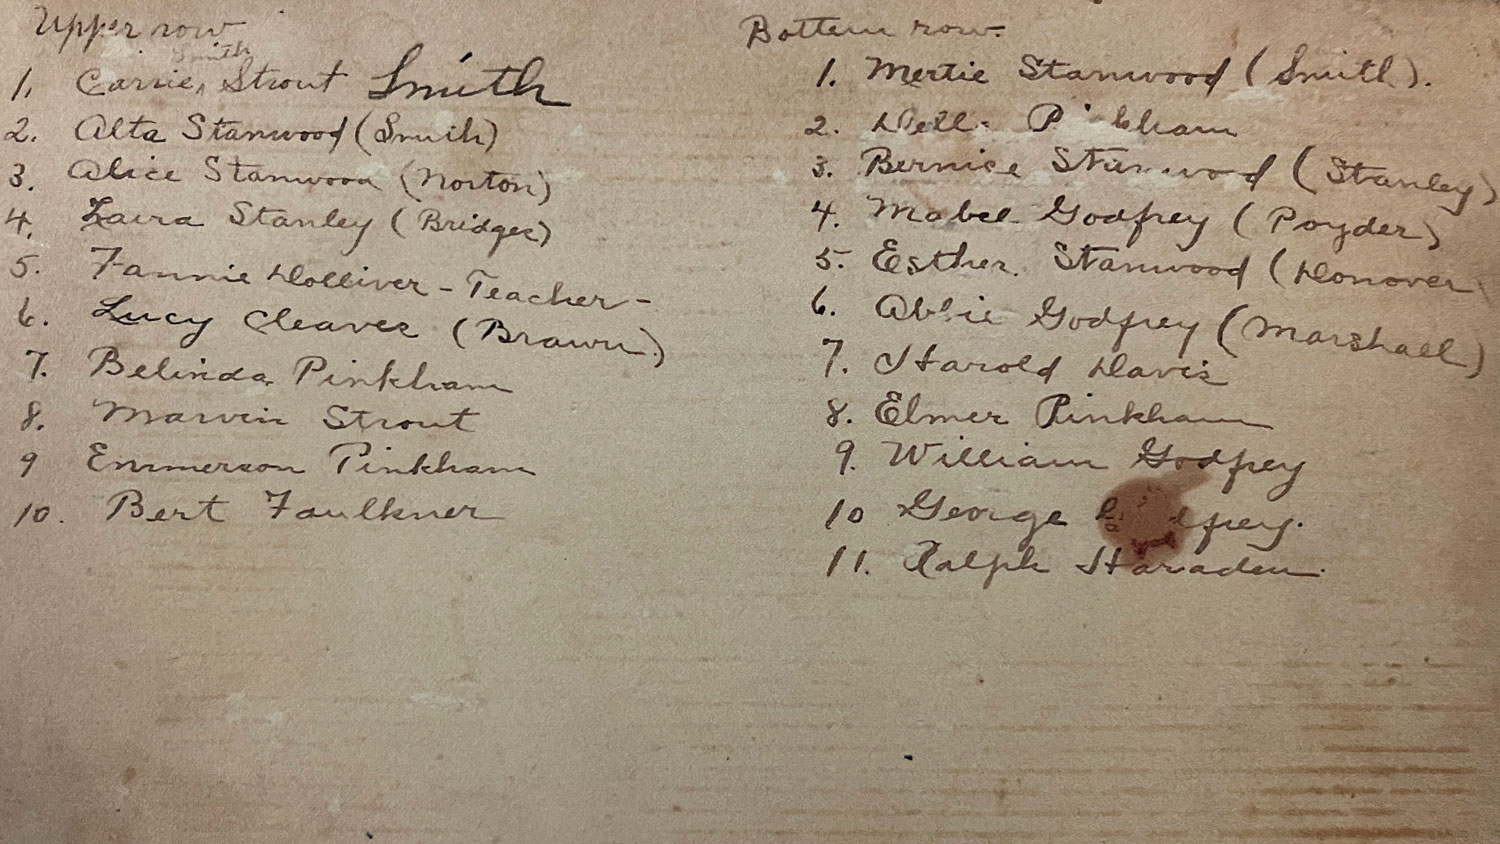 Upper row
Smith
1. Carrie, Strout Smith
2. Alta Stanwood (Smith)
3. Alice Stanwood (Norton)
4. Zaira Stanley (Bridges)
5. Fannie Dolliver - Teacher -
6. Lucy Cleaves (Brawn)
7. Belinda Pinkham
8. Marvin Strout
9 Emmerson Pinkham
10. Bert Faulkner
Bottom row.
1. Mertie Stanwood (Smith).
2. Pinkham
3. Bernice Stanwood (Stanley)
4. Mabel Godfrey (Poyder)
5. Esther. Stanwood (Donover
6. Abbie Godfrey (Marshall)
7. Harold Davis
8. Elmer Pinkham
9. William Godfrey
10 George Godfrey.
11. Ralph Haraden.